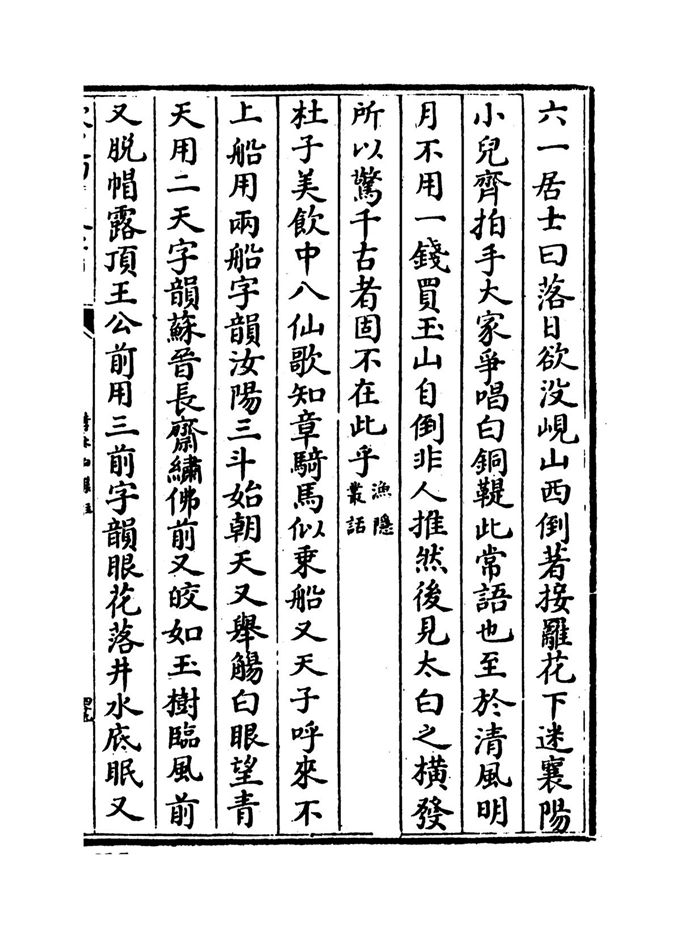 六一居士曰落日欲没峴山西倒著接䍦花下迷襄陽
小兒齊拍手大家爭唱白銅鞮此常語也至於清風明
月不用一錢買玉山自倒非人推然後見太白之橫發
所以驚千古者固不在此乎漁隱叢話
杜子美飲中八仙歌知章騎馬似乗船又天子呼來不
上船用兩船字韻汝陽三斗始朝天又舉觴白眼望青
天用二天字韻蘇晉長齋繡佛前又皎如玉樹臨風前
又脱帽露頂王公前用三前字韻眼花落井水底眠又